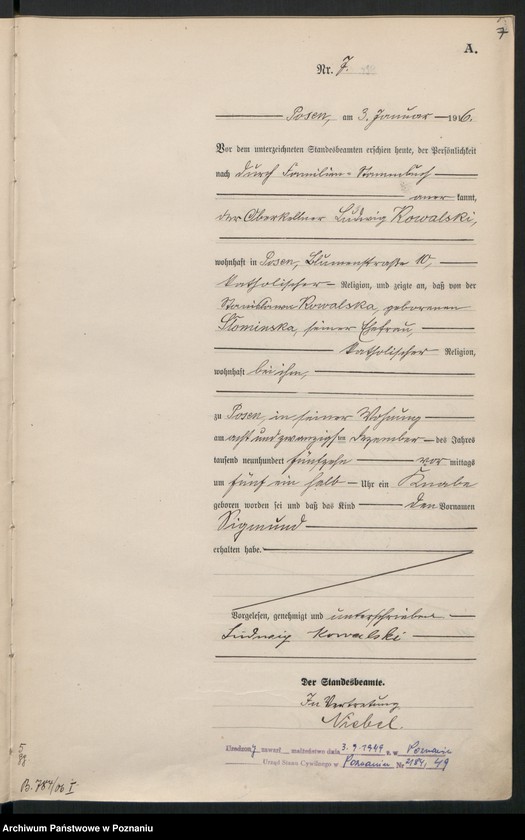 7
A.
Nr. 7.
Posen, am 3. Januar 1916.
Vor dem unterzeichneten Standesbeamten erschien heute, der Persönlichkeit
nach durch Familien-Stammbuch
anerkannt,
der Oberkellner Ludwig Kowalski,
wohnhaft in Posen, Blumenstraße 10,
katholischer Religion, und zeigte an, daß von der
Stanislawa Kowalska, geborenen
Slominska, seiner Ehefrau,
katholischer Religion,
wohnhaft bei ihm,
zu Posen, in seiner Wohnung
am acht und zwanzigsten Dezember des Jahres
tausend neunhundert fünfzehn vor mittags
um fünf ein halb Uhr ein Knabe
geboren worden sei und daß das Kind den Vornamen
Sigmund
erhalten habe.
Vorgelesen, genehmigt und unterschrieben
Ludwig Kowalski
Der Standesbeamte.
In Vertretung
Niebel.
zawarł małżeństwo dnia 3.9.1949 r. w Poznaniu
Urząd Stanu Cywilnego w Poznaniu Nr 2184/49
B. 784/06 I
Archiwum Państwowe w Poznaniu